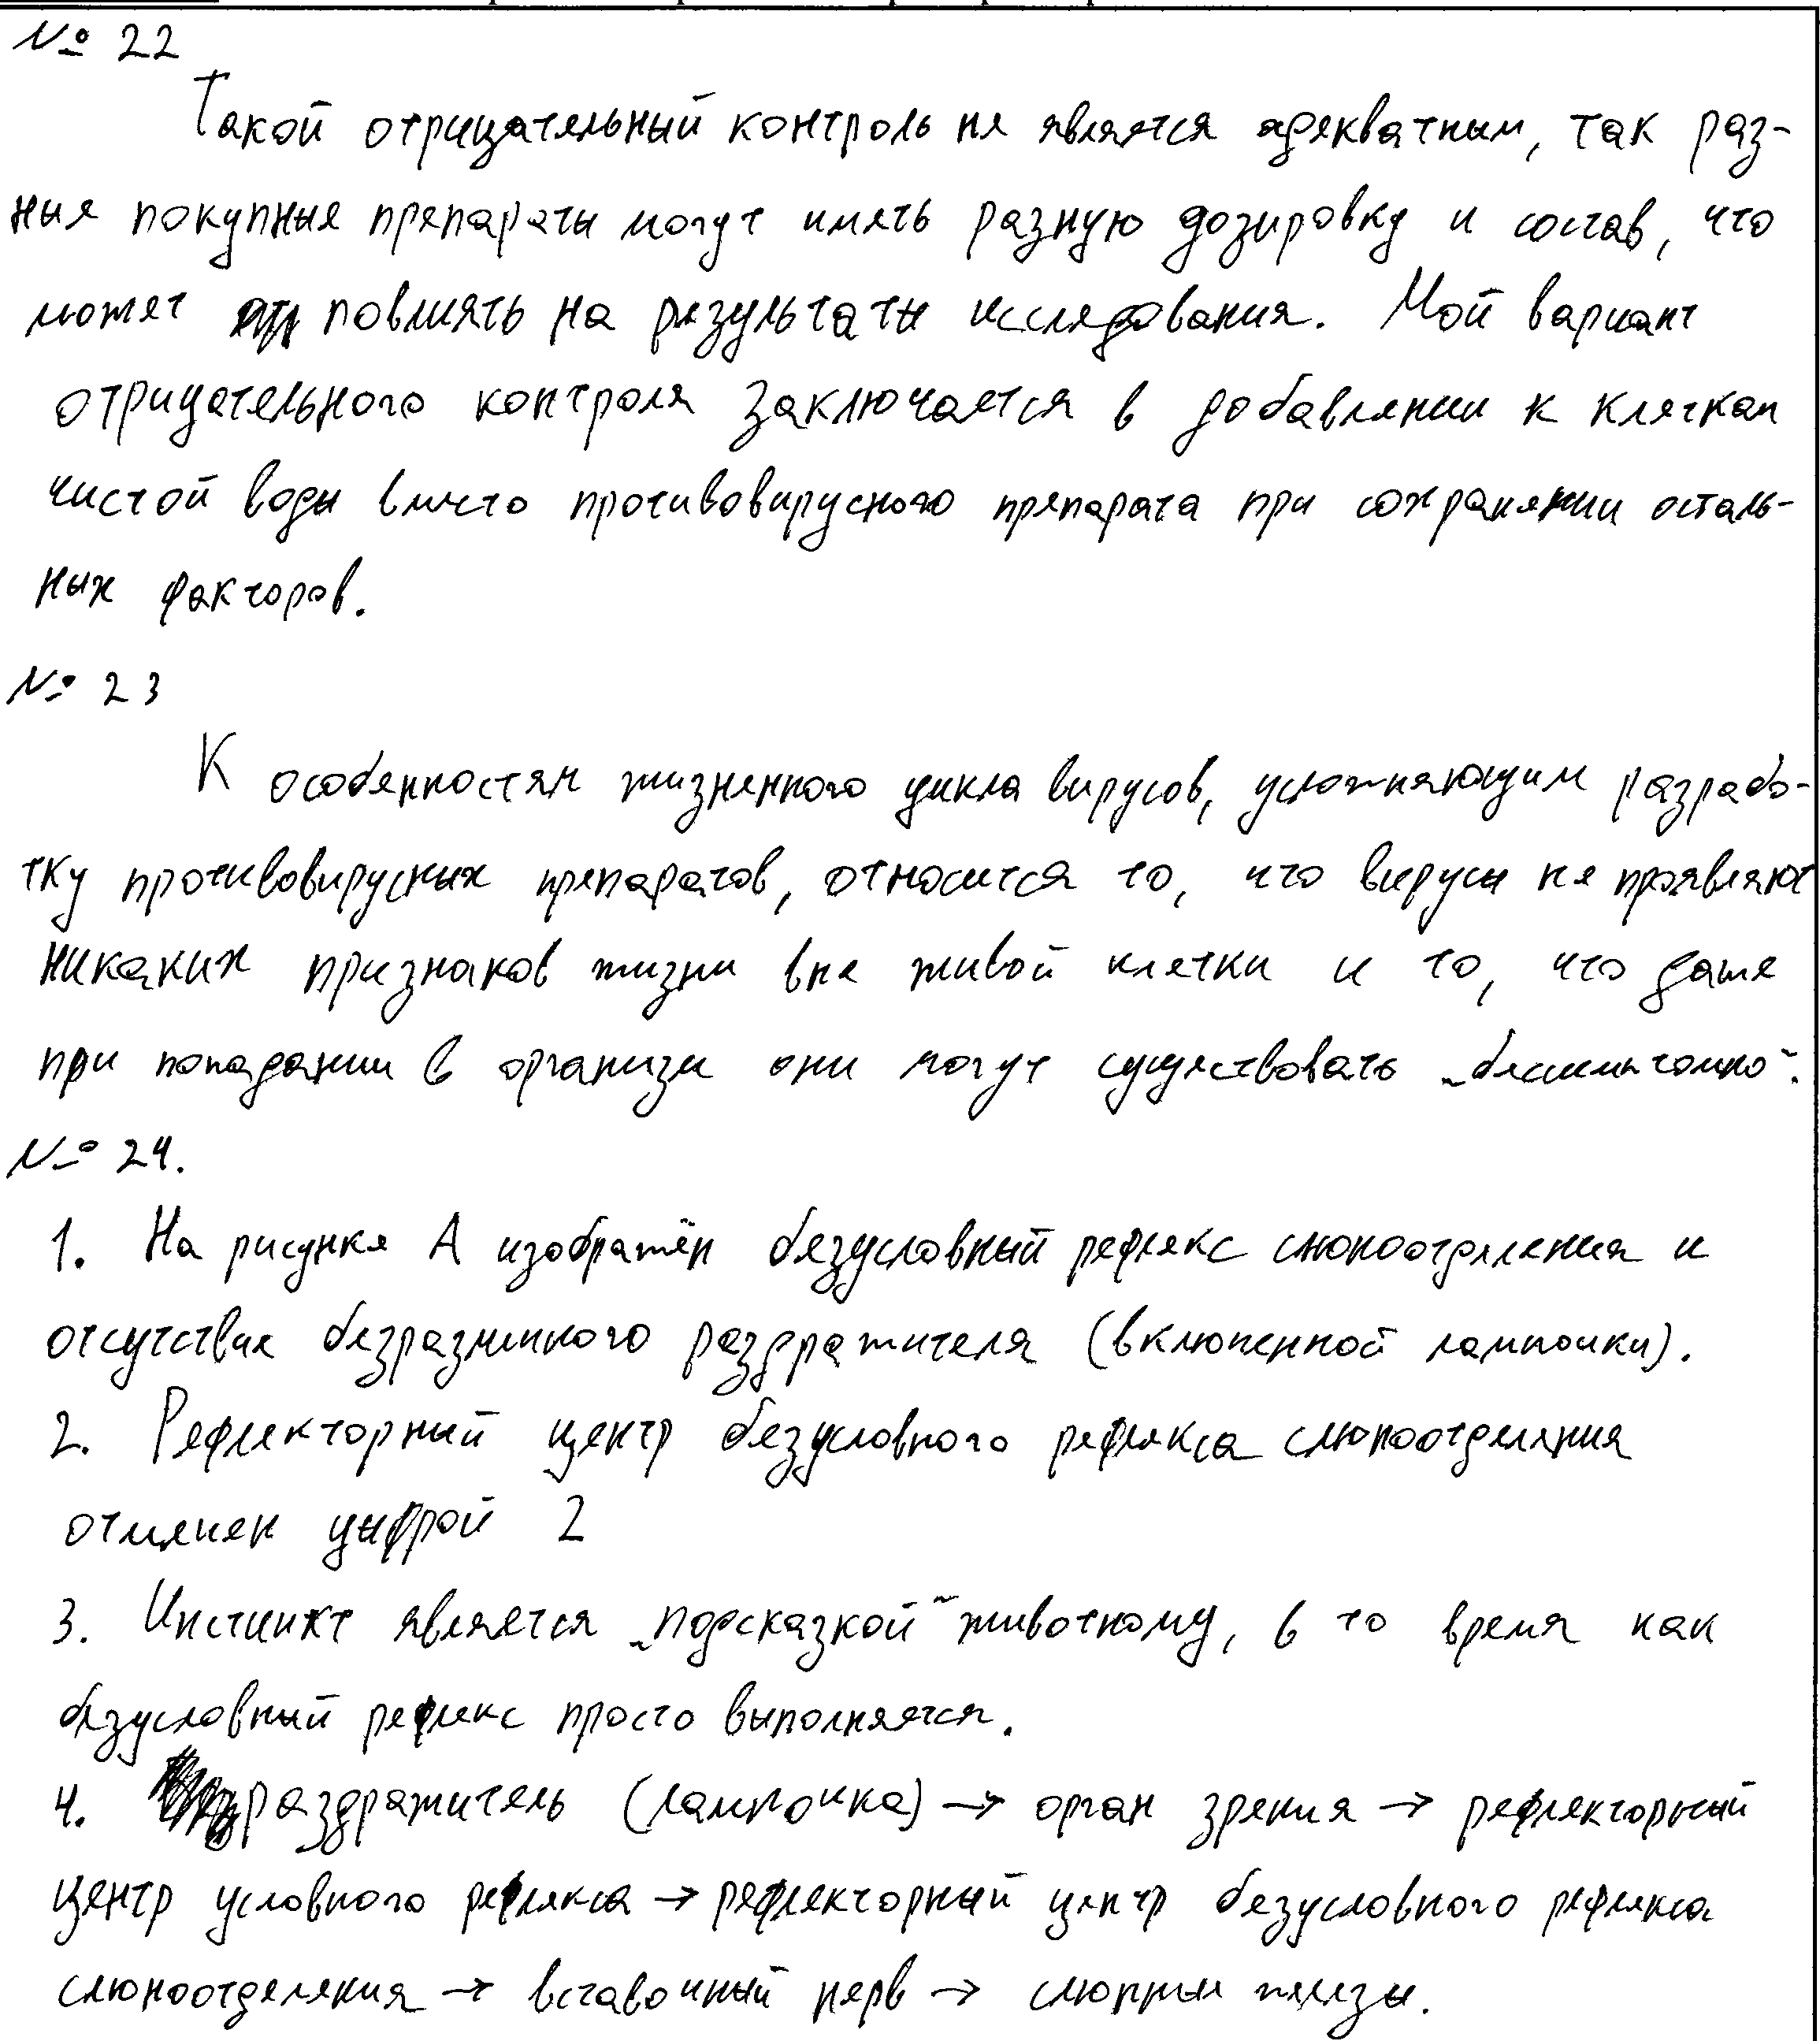 № 22
Такой отрицательный контроль не является адекватным, так раз-
ные покупные препараты могут иметь разную дозировку и состав, что
может повлиять на результаты исследования. Мой вариант
отрицательного контроля заключается в добавлении к клеткам
чистой воды вместо противовирусного препарата при сохранении осталь-
ных факторов.
№ 23
К особенностям жизненного цикла вирусов, усложняющим разрабо-
тку противовирусных препаратов, относится то, что вирусы не проявляют
никаких признаков жизни вне живой клетки и то, что даже
при попадании в организм они могут существовать „бессимптомно".
№ 24.
1. На рисунке А изображён безусловный рефлекс слюноотделения и
отсутствие безразличного раздражителя (включенной лампочки).
2. Рефлекторный центр безусловного рефлекса слюноотделения
отмечен цифрой 2
3. Инстинкт является „подсказкой" животному, в то время как
безусловный рефлекс просто выполняется.
4. раздражитель (лампочка) → орган зрения → рефлекторный
центр условного рефлекса → рефлекторный центр безусловного рефлекса
слюноотделения → вставочный нерв → слюнные железы.